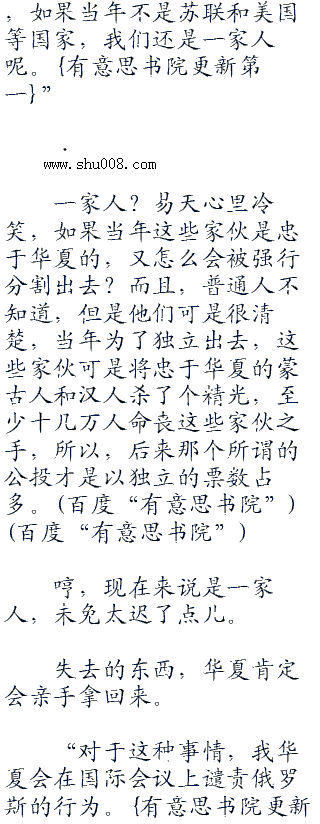 ，如果当年不是苏联和美国
等国家，我们还是一家人
呢。{有意思书院更新第
一}”
．
www.shu008.com
一家人？易天心里冷
笑，如果当年这些家伙是忠
于华夏的，又怎么会被强行
分割出去？而且，普通人不
知道，但是他们可是很清
楚，当年为了独立出去，这
些家伙可是将忠于华夏的蒙
古人和汉人杀了个精光，至
少十几万人命丧这些家伙之
手，所以，后来那个所谓的
公投才是以独立的票数占
多。(百度“有意思书院”)
(百度“有意思书院”)
哼，现在来说是一家
人，未免太迟了点儿。
失去的东西，华夏肯定
会亲手拿回来。
“对于这种事情，我华
夏会在国际会议上谴责俄罗
斯的行为。{有意思书院更新